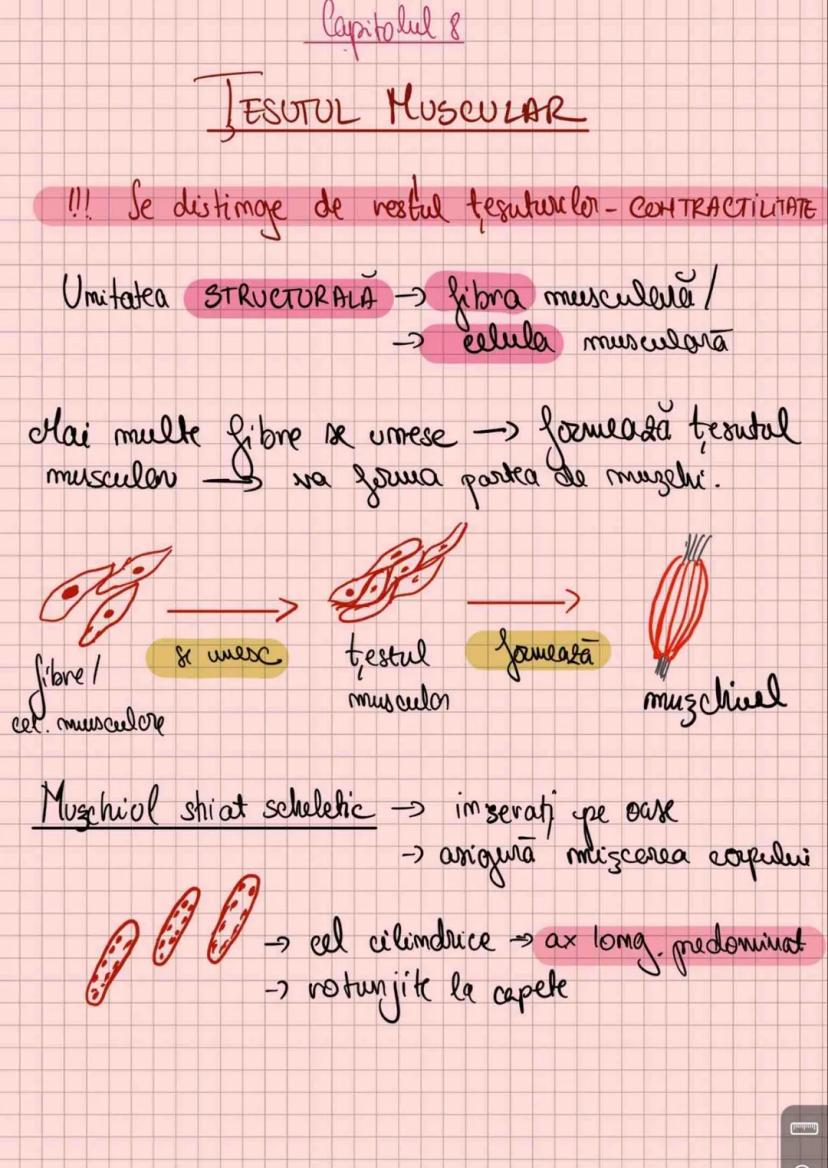 Capitolul 8
ȚESUTUL MUSCULAR
!!! Se distinge de restul țesuturilor - CONTRACTILITATE
Unitatea STRUCTURALĂ → fibra musculară /
→ celula musculară
Mai multe fibre se unesc → formează țesutul
muscular → va forma partea de mușchi.
fibre /
cel. musculare
se unesc
țestul
muscular
formează
mușchiul
Mușchiul striat scheletic → inserați pe oase
→ asigură mișcerea corpului
→ cel cilindrice → ax long. predominat
→ rotunjite la capete